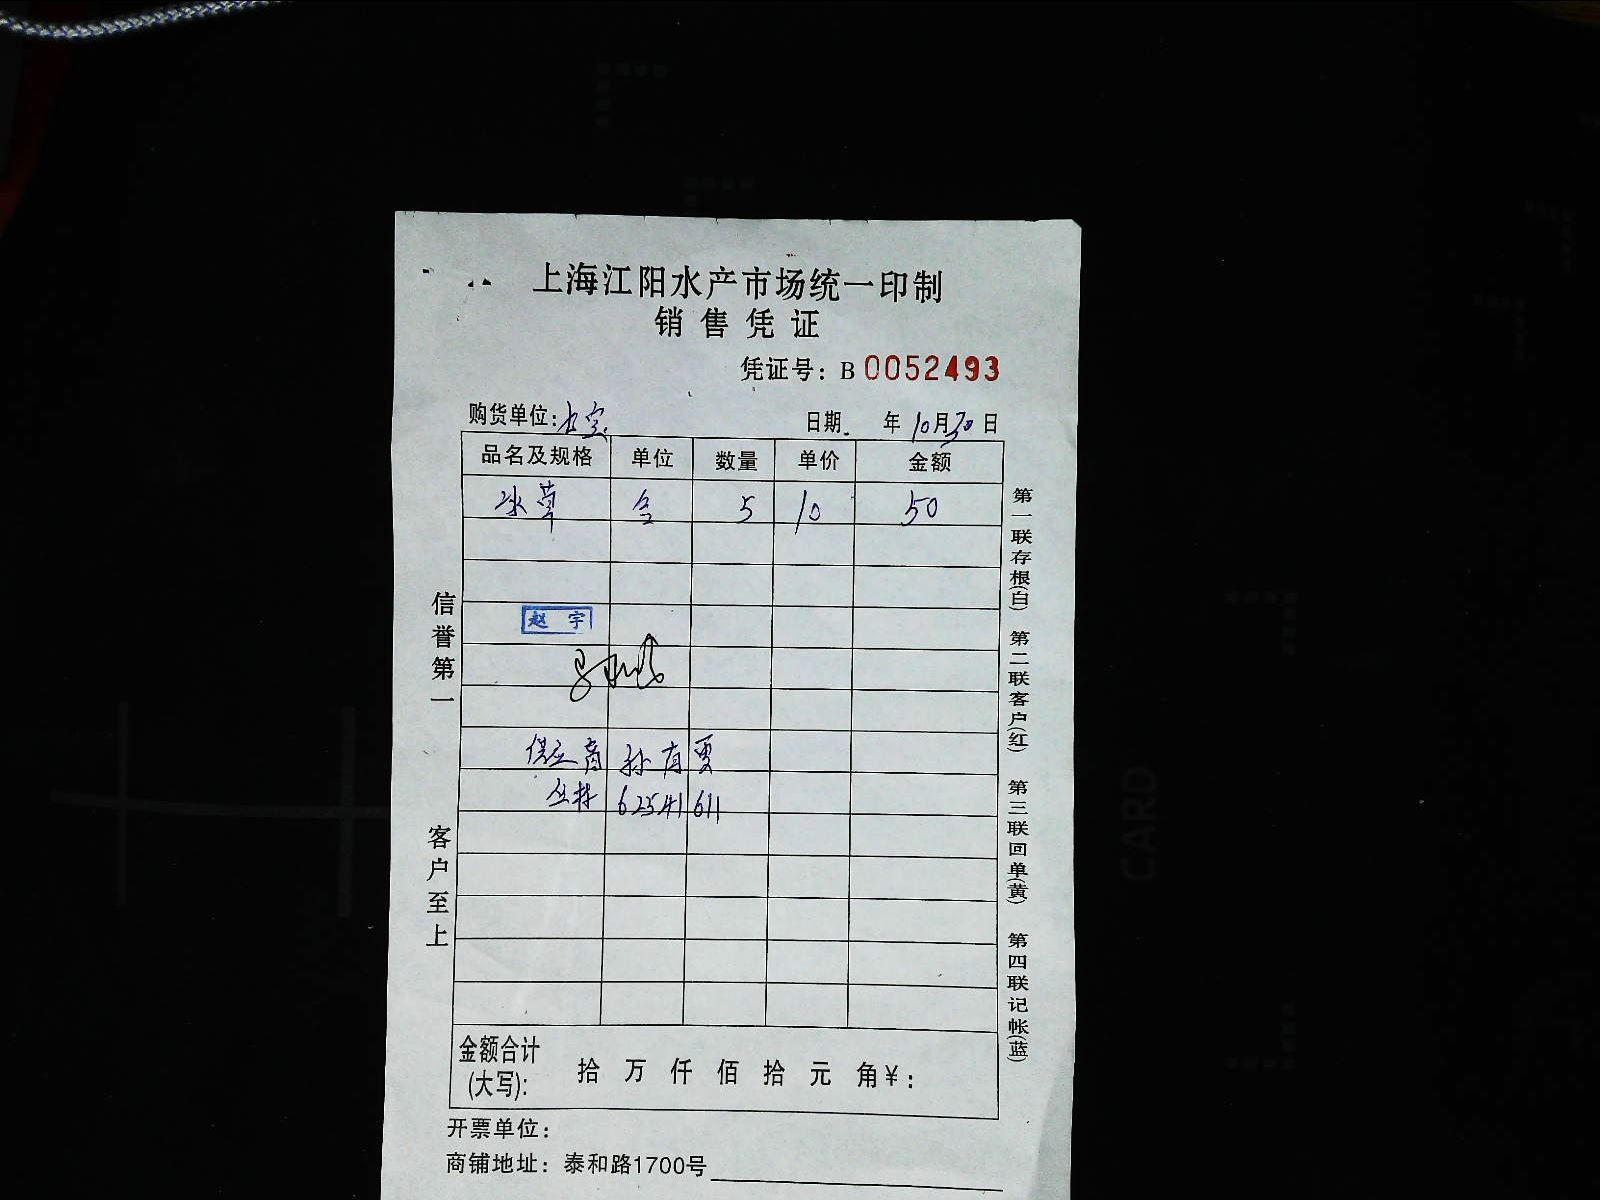 上海江阳水产市场统一印制
销售凭证
凭证号：B 0052493
购货单位：
日期 年10月30日
品名及规格 单位 数量 单价 金额
冰草 合 5 10 50
赵宇
供应商 孙有
丛林 62541611
信誉第一
客户至上
第一联存根(白)
第二联客户(红)
第三联回单(黄)
第四联记帐(蓝)
金额合计
(大写): 拾 万 仟 佰 拾 元 角￥:
开票单位：
商铺地址：泰和路1700号
CARD